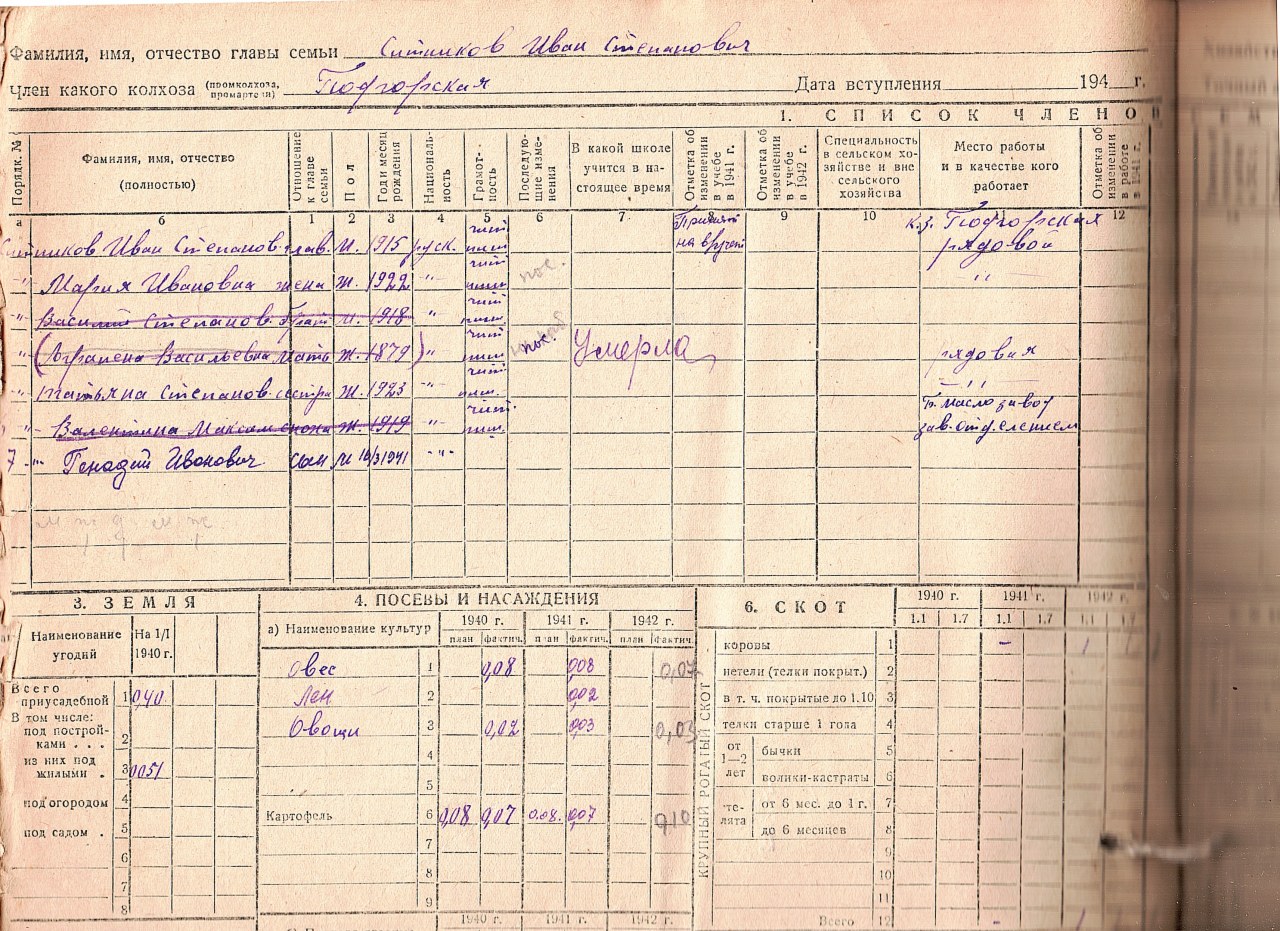 Фамилия, имя, отчество главы семьи Ситников Иван Степанович
Член какого колхоза (промколхоза, промартели) Подгорская Дата вступления 194 г.
1. СПИСОК ЧЛЕНО
Порядк. № Фамилия, имя, отчество (полностью) Отношение к главе семьи Пол Год и месяц рождения Националь-ность Грамот-ность Последую-щие изме-нения В какой школе учится в на-стоящее время Отметка об изменении в учебе в 1941 г. Отметка об изменении в учебе в 1942 г. Специальность в сельском хо-зяйстве и вне сельского хозяйства Место работы и в качестве кого работает Отметка об изменении в работе в 1941 г.
а б 1 2 3 4 5 6 7 8 9 10 11 12
Ситников Иван Степанов. глав. М. 1915 руск. чит. пишт. к.з. Подгорская рядовой
" Мария Ивановна жена Ж. 1922 -"- чит. пишт. пос. "
" Василий Степанов. брат М. 1918 чит. пишт.
" (Аграпена Васильевна мать Ж. 1879) " чит. пишт. пос. Умерла рядовия
" Татьяна Степанов. сестра Ж. 1923 -"- чит. пишт. - " -
" Валентина Максим Ж. 1919 -"- чит. пишт. Маслозавод зав. отделением
7 -"- Генадий Иванович сын М 1941 -"-
3. ЗЕМЛЯ
Наименование угодий На 1/I 1940 г.
Всего приусадебной 1 0,40
В том числе:
под построй-ками . . . 2
из них под жилыми . 3 0051
под огородом 4
под садом . 5
6
7
8
4. ПОСЕВЫ И НАСАЖДЕНИЯ
а) Наименование культур 1940 г. 1941 г. 1942 г.
план фактич. план фактич. план фактич.
Овес 1 0,08 0,08 0,07
Лен 2 0,02
Овощи 3 0,02 0,03 0,03
4
5
Картофель 6 0,08 0,07 0.08. 0,07 0,10
7
8
9
1940 г. 1941 г. 1942 г.
6. СКОТ
1940 г. 1941 г. 1942 г.
1.1 1.7 1.1 1.7 1.1 1.7
КРУПНЫЙ РОГАТЫЙ СКОТ
коровы 1 -
нетели (телки покрыт.) 2
в т. ч. покрытые до 1.10 3
телки старше 1 года 4
от 1—2 лет бычки 5
волики-кастраты 6
те-лята от 6 мес. до 1 г. 7
до 6 месяцев 8
9
10
11
Всего 12 -